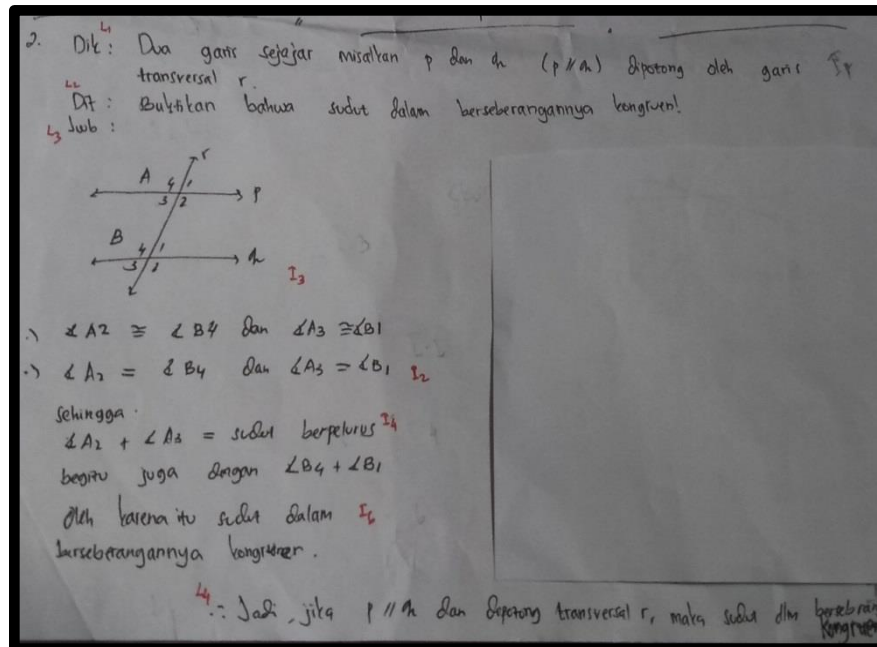 L1
2. Dik : Dua garis sejajar misalkan p dan q (p // q) dipotong oleh garis
transversal r.
L2
Dt : Buktikan bahwa sudut dalam berseberangannya kongruen!
L3 Jwb :
r
A 4 1
3 2 p
B 4 1
3 2 q
I3
∴) ∠A2 ≅ ∠B4 dan ∠A3 ≅ ∠B1
∴) ∠A2 = ∠B4 dan ∠A3 = ∠B1 I2
sehingga
∠A2 + ∠A3 = sudut berpelurus I4
begitu juga dengan ∠B4 + ∠B1
Oleh karena itu sudut dalam I6
berseberangannya
L4 ∴ Jadi, jika p // q dan dipotong transversal r, maka sudut dlm
kongruen